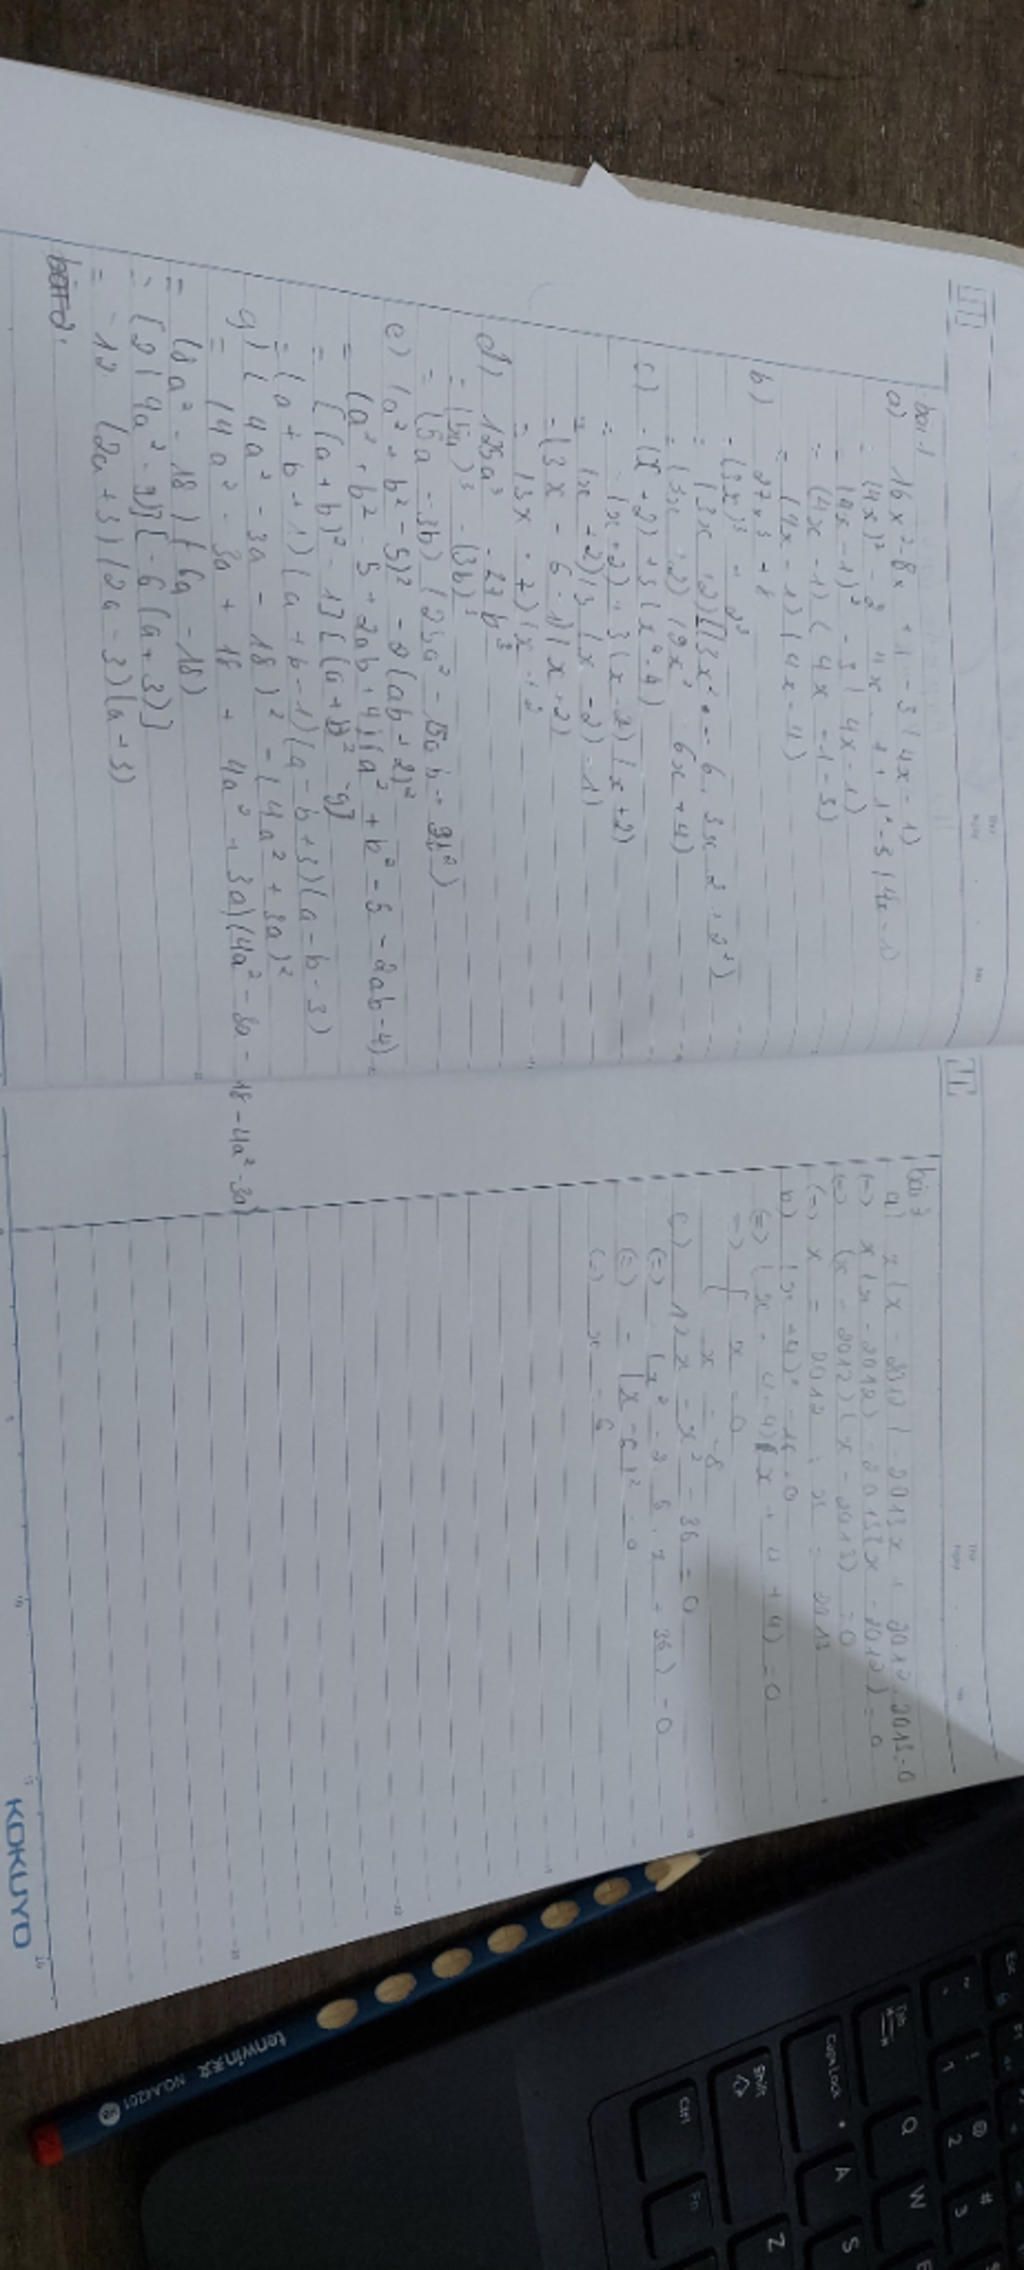 bài 1
a) 16x² - 8x + 1 - 3(4x - 1)
= (4x)² - 2 . 4x . 1 + 1² - 3(4x - 1)
= (4x - 1)² - 3(4x - 1)
= (4x - 1)(4x - 1 - 3)
= (4x - 1)(4x - 4)
b) 27x³ + 8
= (3x)³ + 2³
= (3x + 2)[(3x)² - 3x . 2 + 2²]
= (3x + 2)(9x² - 6x + 4)
c) -(x + 2) + 3(x² - 4)
= -(x + 2) + 3(x - 2)(x + 2)
= (x + 2)(3(x - 2) - 1)
= (3x - 6 - 1)(x + 2)
= (3x - 7)(x + 2)
d) 125a³ - 27b³
= (5a)³ - (3b)³
= (5a - 3b)(25a² + 15ab + 9b²)
e) (a² + b² - 5)² - 2(ab + 2)²
= (a² + b² - 5 + 2ab + 4)(a² + b² - 5 - 2ab - 4)
= [(a + b)² - 1][(a + b)² - 9]
= (a + b + 1)(a + b - 1)(a - b + 3)(a - b - 3)
g) (4a² - 3a - 18)² - (4a² + 3a)²
= (4a² - 3a + 18 + 4a² + 3a)(4a² - 3a - 18 - 4a² - 3a)
= (8a² - 18)(-6a - 18)
= [2(4a² - 9)][-6(a + 3)]
= -12 (2a + 3)(2a - 3)(a + 3)
bài 2.
bài 3
a) x(x - 2012) - 2013x + 2012 . 2013 = 0
(=) x(x - 2012) - 2013(x - 2012) = 0
(=) (x - 2012)(x - 2013) = 0
(=) x = 2012 ; x = 2013
b) (x + 4)² - 16 = 0
(=) (x + 4 - 4)(x + 4 + 4) = 0
=) [ x = 0
x = -8
c) 12x - x² - 36 = 0
(=) -(x² - 2 . 6 . x + 36) = 0
(=) -(x - 6)² = 0
(=) x = 6
KOKUYO
tenwin天文 NO.A4201
Esc
Tab
Caps Lock
Shift
Ctrl
Fn
! 1
@ 2
# 3
Q
W
E
A
S
Z